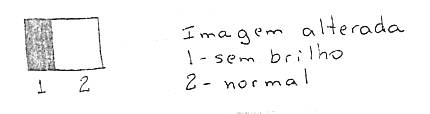 Imagem alterada
1-sem brilho
2-normal
1 2